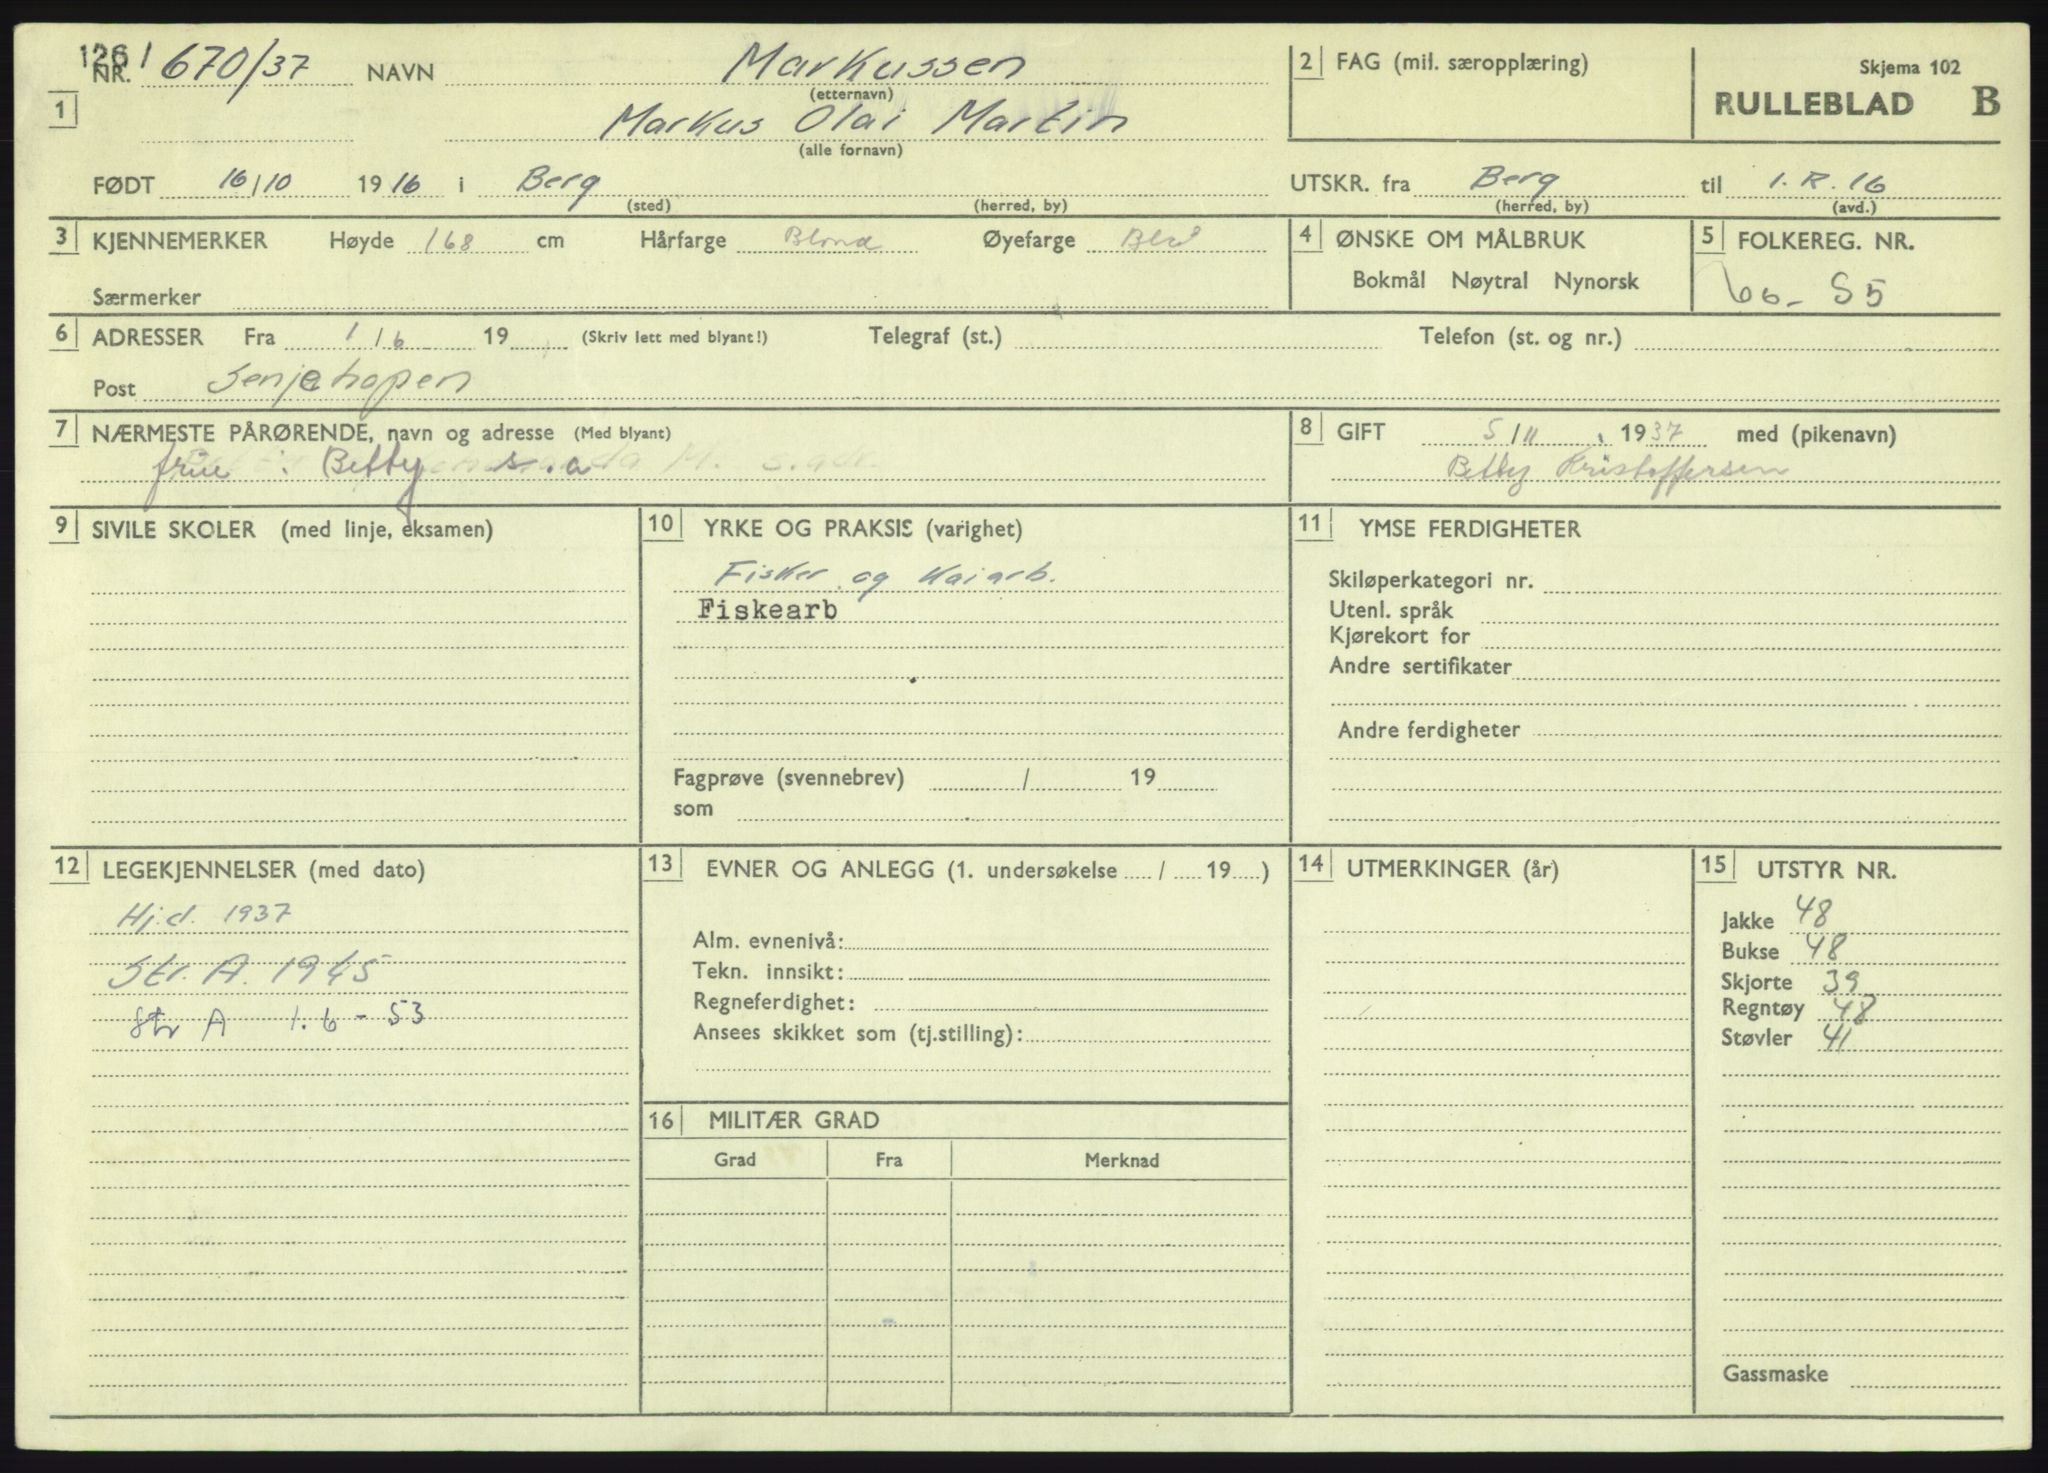 1261
NR. 670/37 NAVN Markussen
(etternavn)
1
Markus Olai Martin
(alle fornavn)
2 FAG (mil. særopplæring)
Skjema 102
RULLEBLAD B
FØDT 16/10 1916 i Berg
(sted) (herred, by)
UTSKR. fra Berg til I.R.16
(herred, by) (avd.)
3 KJENNEMERKER Høyde 168 cm Hårfarge Blond Øyefarge Blå
Særmerker
4 ØNSKE OM MÅLBRUK
Bokmål Nøytral Nynorsk
5 FOLKEREG. NR.
60- S5
6 ADRESSER Fra 1/6 19 (Skriv lett med blyant!) Telegraf (st.) Telefon (st. og nr.)
Post Senjehopen
7 NÆRMESTE PÅRØRENDE, navn og adresse (Med blyant)
frue : Betty s.a
8 GIFT 5/11 1937 med (pikenavn)
Betty Kristoffersen
9 SIVILE SKOLER (med linje, eksamen)
10 YRKE OG PRAKSIS (varighet)
Fisker og Kaiarb.
Fiskearb
Fagprøve (svennebrev) / 19
som
11 YMSE FERDIGHETER
Skiløperkategori nr.
Utenl. språk
Kjørekort for
Andre sertifikater
Andre ferdigheter
12 LEGEKJENNELSER (med dato)
Hj.d. 1937
Str. A. 1945
Str A 1.6-53
13 EVNER OG ANLEGG (1. undersøkelse / 19 )
Alm. evnenivå:
Tekn. innsikt:
Regneferdighet:
Ansees skikket som (tj.stilling):
14 UTMERKINGER (år)
15 UTSTYR NR.
Jakke 48
Bukse 48
Skjorte 39
Regntøy 48
Støvler 41
Gassmaske
16 MILITÆR GRAD
Grad Fra Merknad